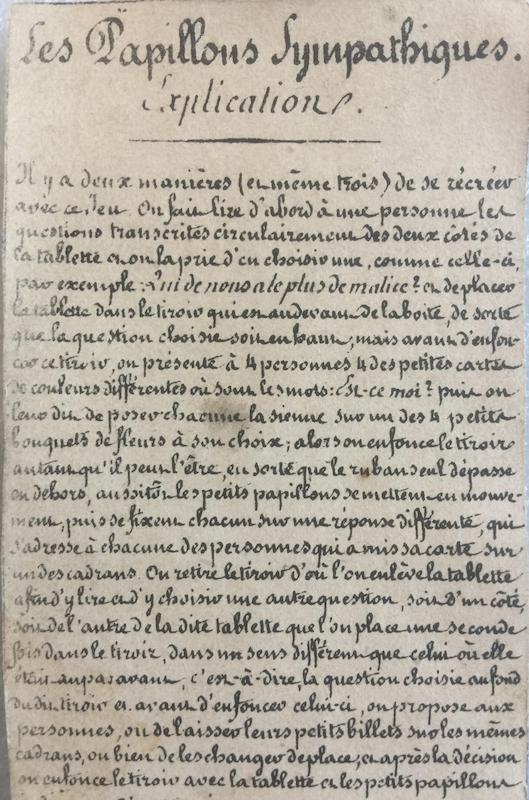 Les Papillons Sympathiques.
Explication.
Il y a deux manières (et même trois) de se récréer
avec ce Jeu. On fait lire d'abord à une personne les
questions transcrites circulairement des deux côtés de
la tablette et on la prie d'en choisir une, comme celle-ci,
par exemple: Qui de nous a le plus de malice? et de placer
la tablette dans le tiroir qui est au devant de la boîte, de sorte
que la question choisie soit en haut; mais avant d'enfon-
cer ce tiroir, on présente à 4 personnes 4 des petites cartes
de couleurs différentes où sont les mots: Est-ce moi? puis on
leur dit de poser chacune la sienne sur un des 4 petits
bouquets de fleurs à son choix; alors on enfonce le tiroir
autant qu'il peut l'être, en sorte que le ruban seul dépasse
en dehors, aussitôt les petits papillons se mettent en mouve-
ment, puis se fixent chacun sur une réponse différente, qui
s'adresse à chacune des personnes qui a mis sa carte sur
un des cadrans. On retire le tiroir d'où l'on enlève la tablette
afin d'y lire et d'y choisir une autre question, soit d'un côté,
soit de l'autre de la dite tablette que l'on place une seconde
fois dans le tiroir, dans un sens différent que celui où elle
était auparavant, c'est-à-dire, la question choisie au fond
du dit tiroir et avant d'enfoncer celui-ci, on propose aux
personnes, ou de laisser leurs petits billets sur les mêmes
cadrans, ou bien de les changer de place; et après la décision
on enfonce le tiroir avec la tablette et les petits papillons